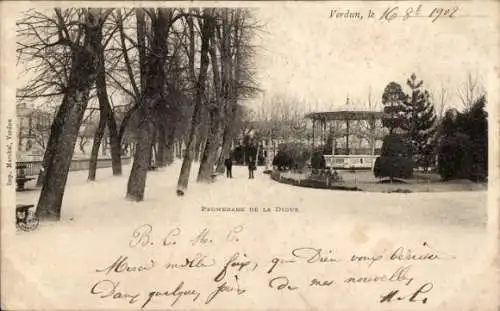 Verdun, le 16 8bre 1902
PROMENADE DE LA DIGUE
Imp. Marchal, Verdun
B. C. M. C.
Merci mille fois, que Dieu vous bénisse
Dans quelques jours de mes nouvelles
M. L.